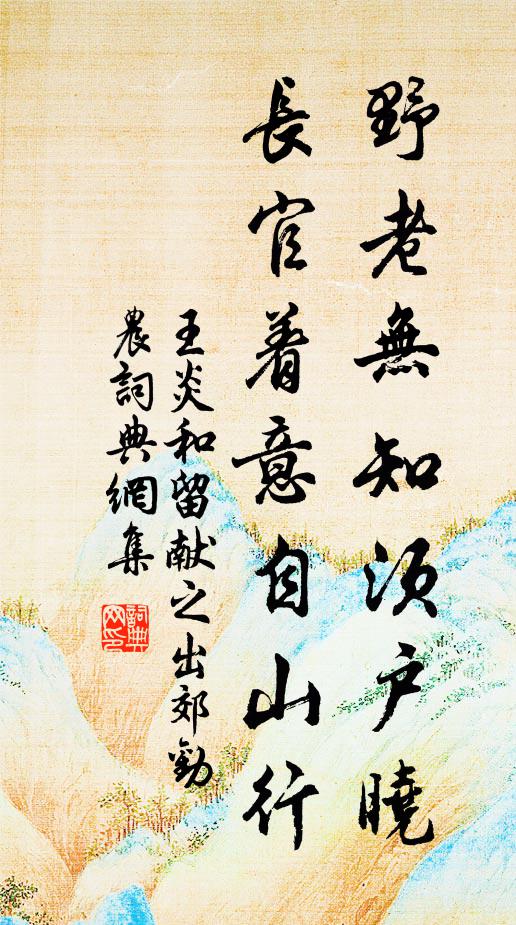 野老無知須户曉
長官着意自山行
王炎和留献之出郊勸
農詞典網集
詞典網印